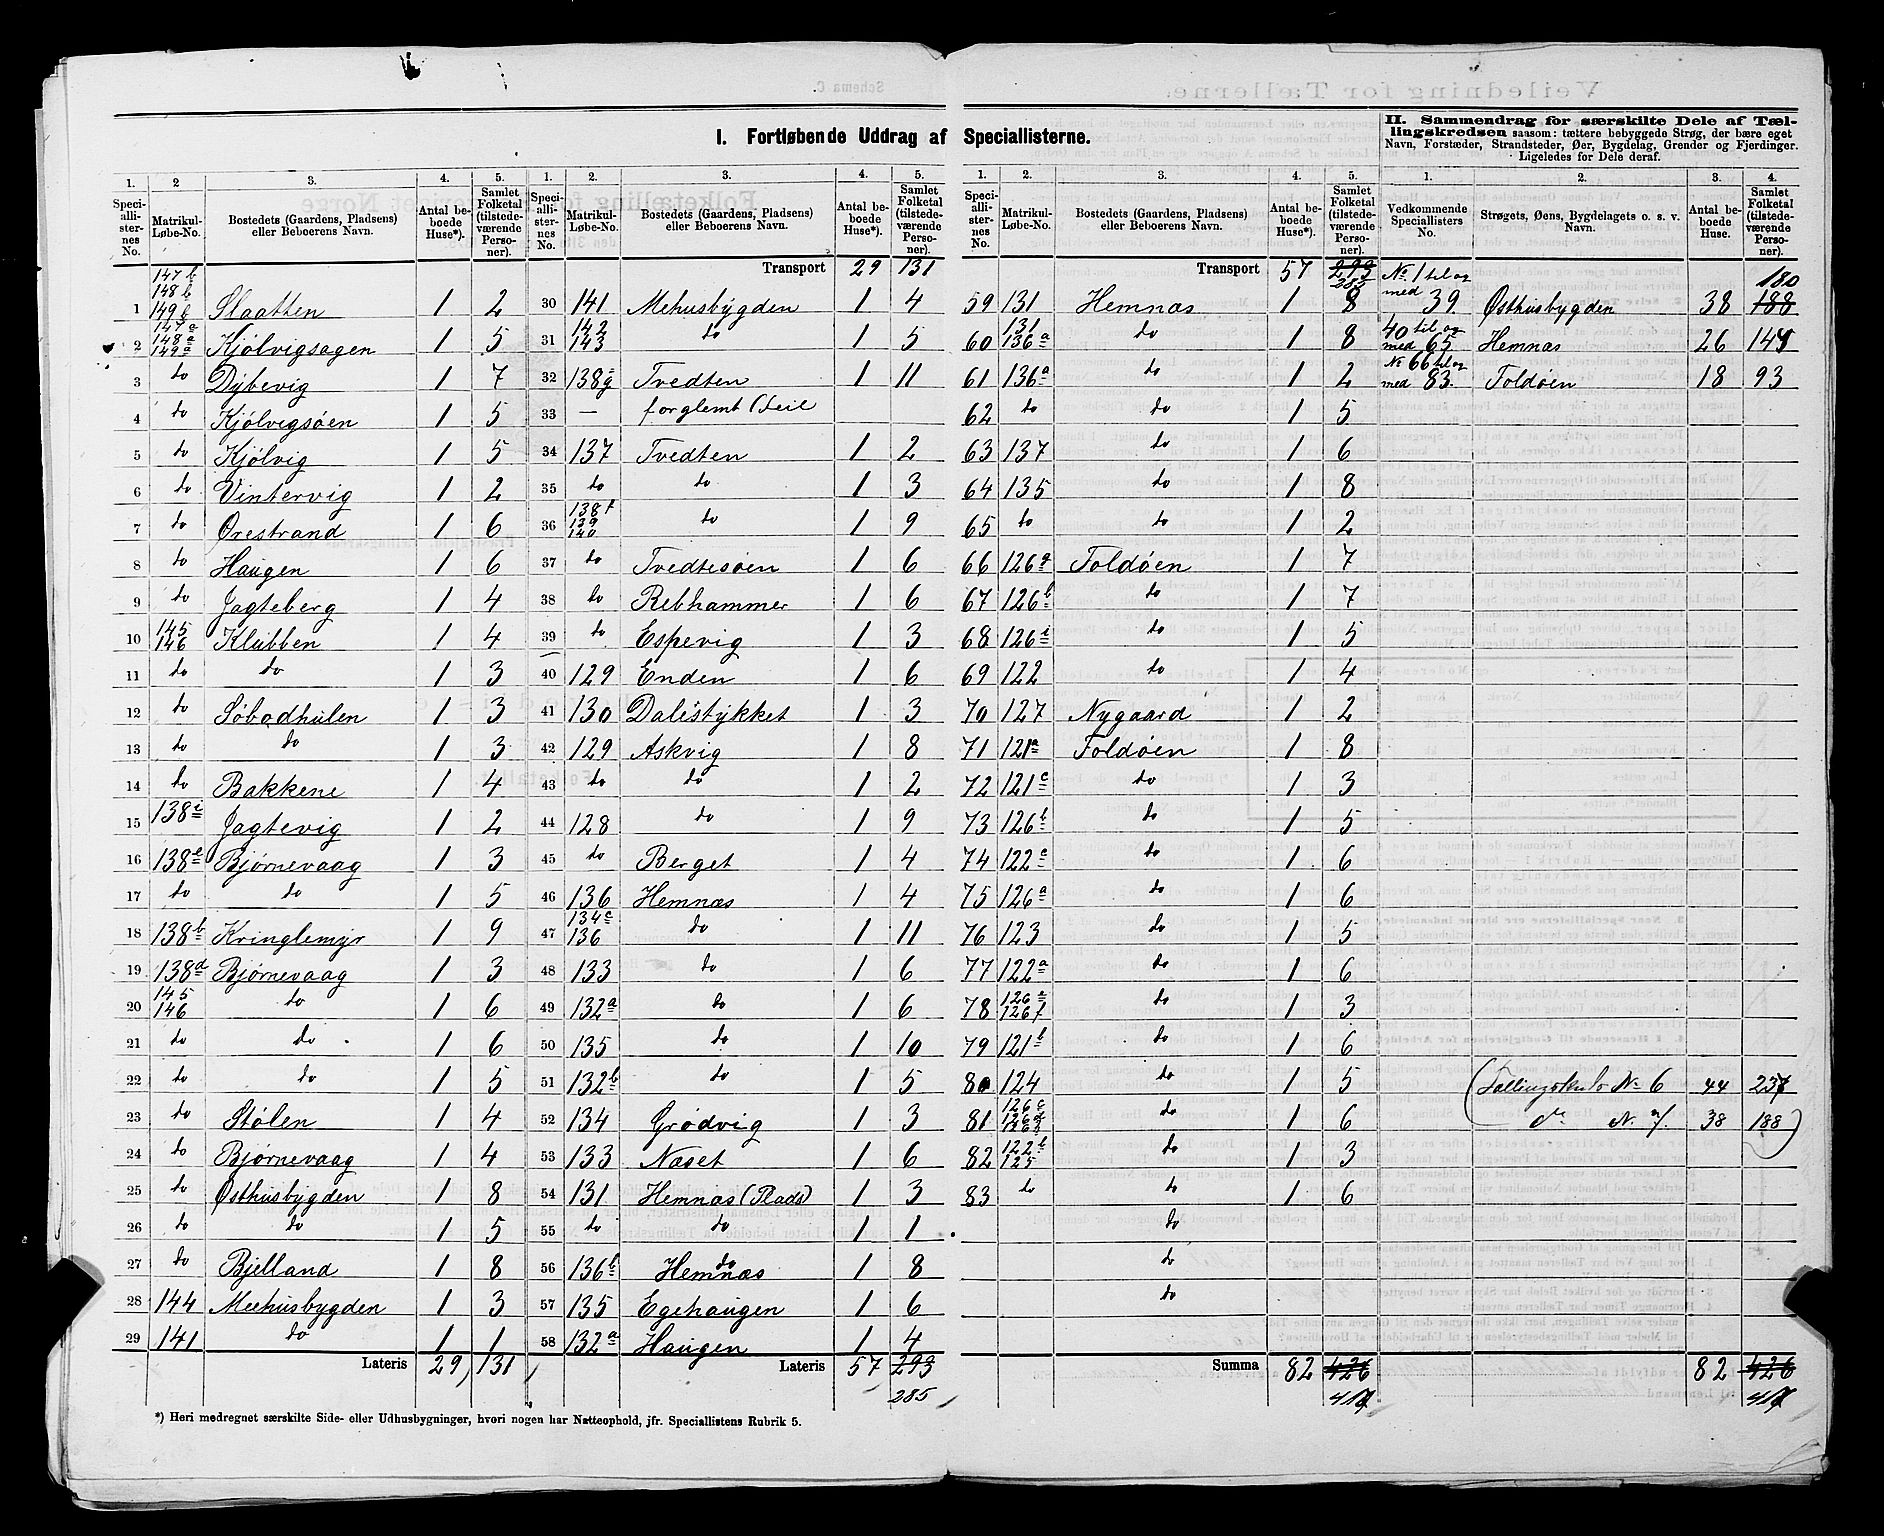 I. Fortløbende Uddrag af Speciallisterne.
II. Sammendrag for særskilte Dele af Tællingskredsen saasom: tættere bebyggede Strøg, der bære eget Navn, Forstæder, Strandsteder, Øer, Bygdelag, Grender og Fjerdinger. Ligeledes for Dele deraf.
1. 2 3. 4. 5. 1. 2. 3. 4. 5. 1. 2. 3. 4. 5. 1. 2. 3. 4.
Speciallisternes No. Matrikul-Løbe-No. Bostedets (Gaardens, Pladsen) eller Beboerens Navn. Antal beboede Huse*). Samlet Folketal (tilstedeværende Personer).
Vedkommende Speciallisters No. Strøgets, Øens, Bygdelagets o. s. v. Navn. Antal beboede Huse. Samlet Folketal (tilstedeværende Personer).
1 147b 148b 149b Slaatten 1 2
2 147a 148a 149a Kjølvigsagen 1 5
3 do Dybevig 1 7
4 do Kjølvigsøen 1 5
5 do Kjølvig 1 5
6 do Vintervig 1 2
7 do Ørestrand 1 6
8 do Haugen 1 6
9 do Jagteberg 1 4
10 145 146 Klubben 1 4
11 do do 1 3
12 do Søbodhulen 1 3
13 do do 1 3
14 do Bakkene 1 4
15 138i Jagtevig 1 2
16 138e Bjørnevaag 1 3
17 do do 1 5
18 138b Kringlemyr 1 9
19 138d Bjørnevaag 1 3
20 145 146 do 1 6
21 do do 1 6
22 do do 1 5
23 do Stølen 1 4
24 do Bjørnevaag 1 4
25 do Østhusbygden 1 8
26 do do 1 5
27 do Bjelland 1 8
28 144 Meehusbygden 1 3
29 141 do 1 1
Lateris 29 131
Transport 29 131
30 141 Mehusbygden 1 4
31 142 143 do 1 5
32 138g Tvedten 1 11
33 — forglemt (feil
34 137 Tvedten 1 2
35 do do 1 3
36 138f 139 140 do 1 9
37 do Tvedtesøen 1 6
38 do Rebhammer 1 6
39 do Espevig 1 3
40 129 Enden 1 6
41 130 Dalestykket 1 3
42 129 Askvig 1 8
43 do do 1 2
44 128 do 1 9
45 do Berget 1 4
46 136 Hemnæs 1 4
47 134c 136 do 1 11
48 133 do 1 6
49 132a do 1 6
50 135 do 1 10
51 132b do 1 5
52 134 Grødvig 1 3
53 133 Næset 1 6
54 131 Hemnæs (Plads) 1 3
55 do do 1 1
56 136b Hemnæs do 1 8
57 135 Egehaugen 1 6
58 132a Haugen 1 4
Lateris 57 293
285
Transport 57 293
285
59 131 Hemnæs 1 8
60 131 136a do 1 8
61 136a do 1 2
62 do do 1 5
63 137 do 1 6
64 135 do 1 8
65 do do 1 2
66 126g Foldøen 1 7
67 126b do 1 7
68 126i do 1 5
69 122 do 1 4
70 127 Nygaard 1 2
71 121a Foldøen 1 8
72 121c do 1 3
73 126b do 1 5
74 122c do 1 6
75 126a do 1 6
76 123 do 1 5
77 122a do 1 6
78 126e 126f do 1 3
79 121b do 1 6
80 124 do 1 5
81 126c 126d do 1 6
82 122b 125 do 1 3
83 do do 1 6
do
do
do
Summa 82 426
No. 1 til og med 39. Østhusbygden 38 188
180
40 til og med 65 Hemnæs 26 144
No 66 til og med 83. Foldøen 18 93
(Tællingskreds No 6 44 237
do No 7. 38 188)
82 426
*) Heri medregnet særskilte Side- eller Udhusbygninger, hvori nogen har Natteophold, jfr. Speciallistens Rubrik 5.